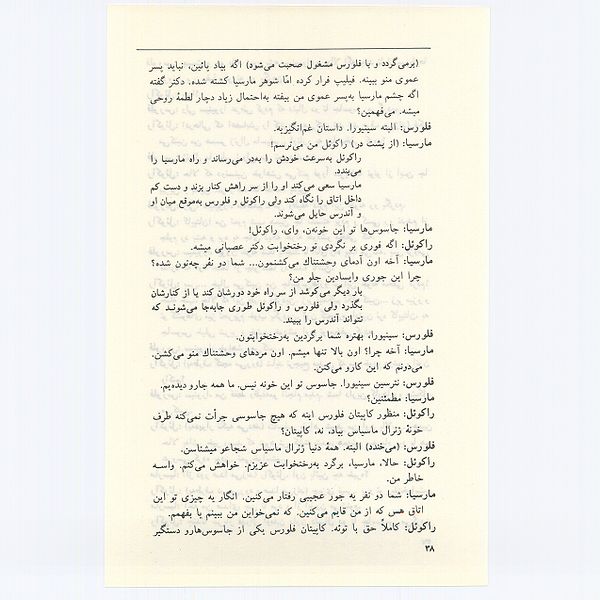 (برمی‌گردد و با فلورس مشغول صحبت می‌شود) اگه بیاد پائین، نباید پسر
عموی منو ببینه. فیلیپ فرار کرده امّا شوهر مارسیا کشته شده. دکتر گفته
اگه چشم مارسیا به‌پسر عموی من بیفته به‌احتمال زیاد دچار لطمهٔ روحی
میشه. می‌فهمین؟
فلورس: البته سینیورا. داستان غم‌انگیزیه.
مارسیا: (از پشت در) راکوئل من می‌ترسم!
راکوئل به‌سرعت خودش را به‌در می‌رساند و راه مارسیا را
می‌بندد.
مارسیا سعی می‌کند او را از سر راهش کنار بزند و دست کم
داخل اتاق را نگاه کند ولی راکوئل و فلورس به‌موقع میان او
و آندرس حایل می‌شوند.
مارسیا: جاسوس‌ها تو این خونه‌ن، وای، راکوئل!
راکوئل: اگه فوری بر نگردی تو رختخوابت دکتر عصبانی میشه.
مارسیا: آخه اون آدمای وحشتناك می‌کشنمون... شما دو نفر چه‌تون شده؟
چرا این جوری وایسادین جلو من؟
بار دیگر می‌کوشد از سر راه خود دورشان کند یا از کنارشان
بگذرد ولی فلورس و راکوئل طوری جابه‌جا می‌شوند که
نتواند آندرس را ببیند.
فلورس: سینیورا، بهتره شما برگردین به‌رختخوابتون.
مارسیا: آخه چرا؟ اون بالا تنها میشم. اون مردهای وحشتناك منو می‌کشن.
می‌دونم که این کارو می‌کنن.
فلورس: نترسین سینیورا. جاسوس تو این خونه نیس. ما همه جارو دیده‌یم.
مارسیا: مطمئنین؟
راکوئل: منظور کاپیتان فلورس اینه که هیچ جاسوسی جرأت نمی‌کنه طرف
خونهٔ ژنرال ماسیاس بیاد، نه، کاپیتان؟
فلورس: (می‌خندد) البته. همهٔ دنیا ژنرال ماسیاس شجاعو میشناسن.
راکوئل: حالا، مارسیا، برگرد به‌رختخوابت عزیزم. خواهش می‌کنم. واسه
خاطر من.
مارسیا: شما دو نفر یه جور عجیبی رفتار می‌کنین. انگار یه چیزی تو این
اتاق هس که از من قایم می‌کنین. که نمی‌خواین من ببینم یا بفهمم.
راکوئل: کاملاً حق با توئه. کاپیتان فلورس یکی از جاسوس‌هارو دستگیر
۳۸